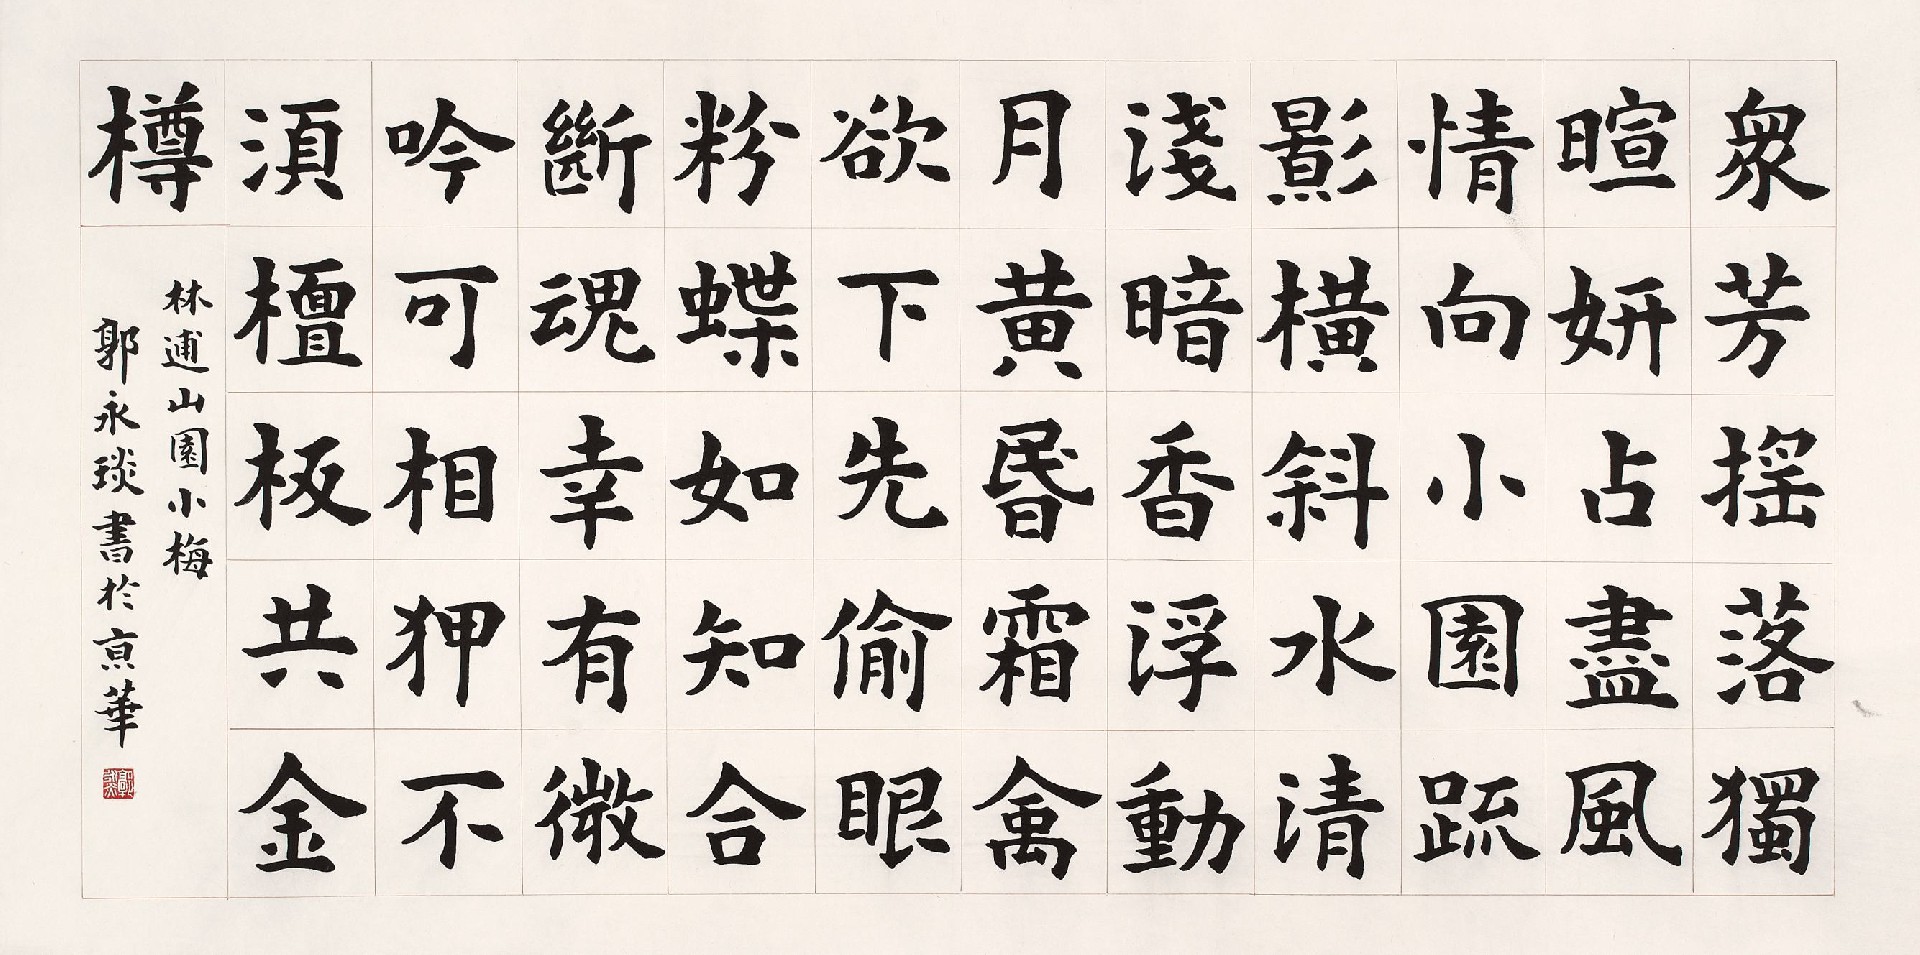 眾芳搖落獨
暄妍占盡風
情向小園疏
影橫斜水清
淺暗香浮動
月黃昏霜禽
欲下先偷眼
粉蝶如知合
斷魂幸有微
吟可相狎不
須檀板共金
樽
林逋山園小梅
郭永琰書於京華